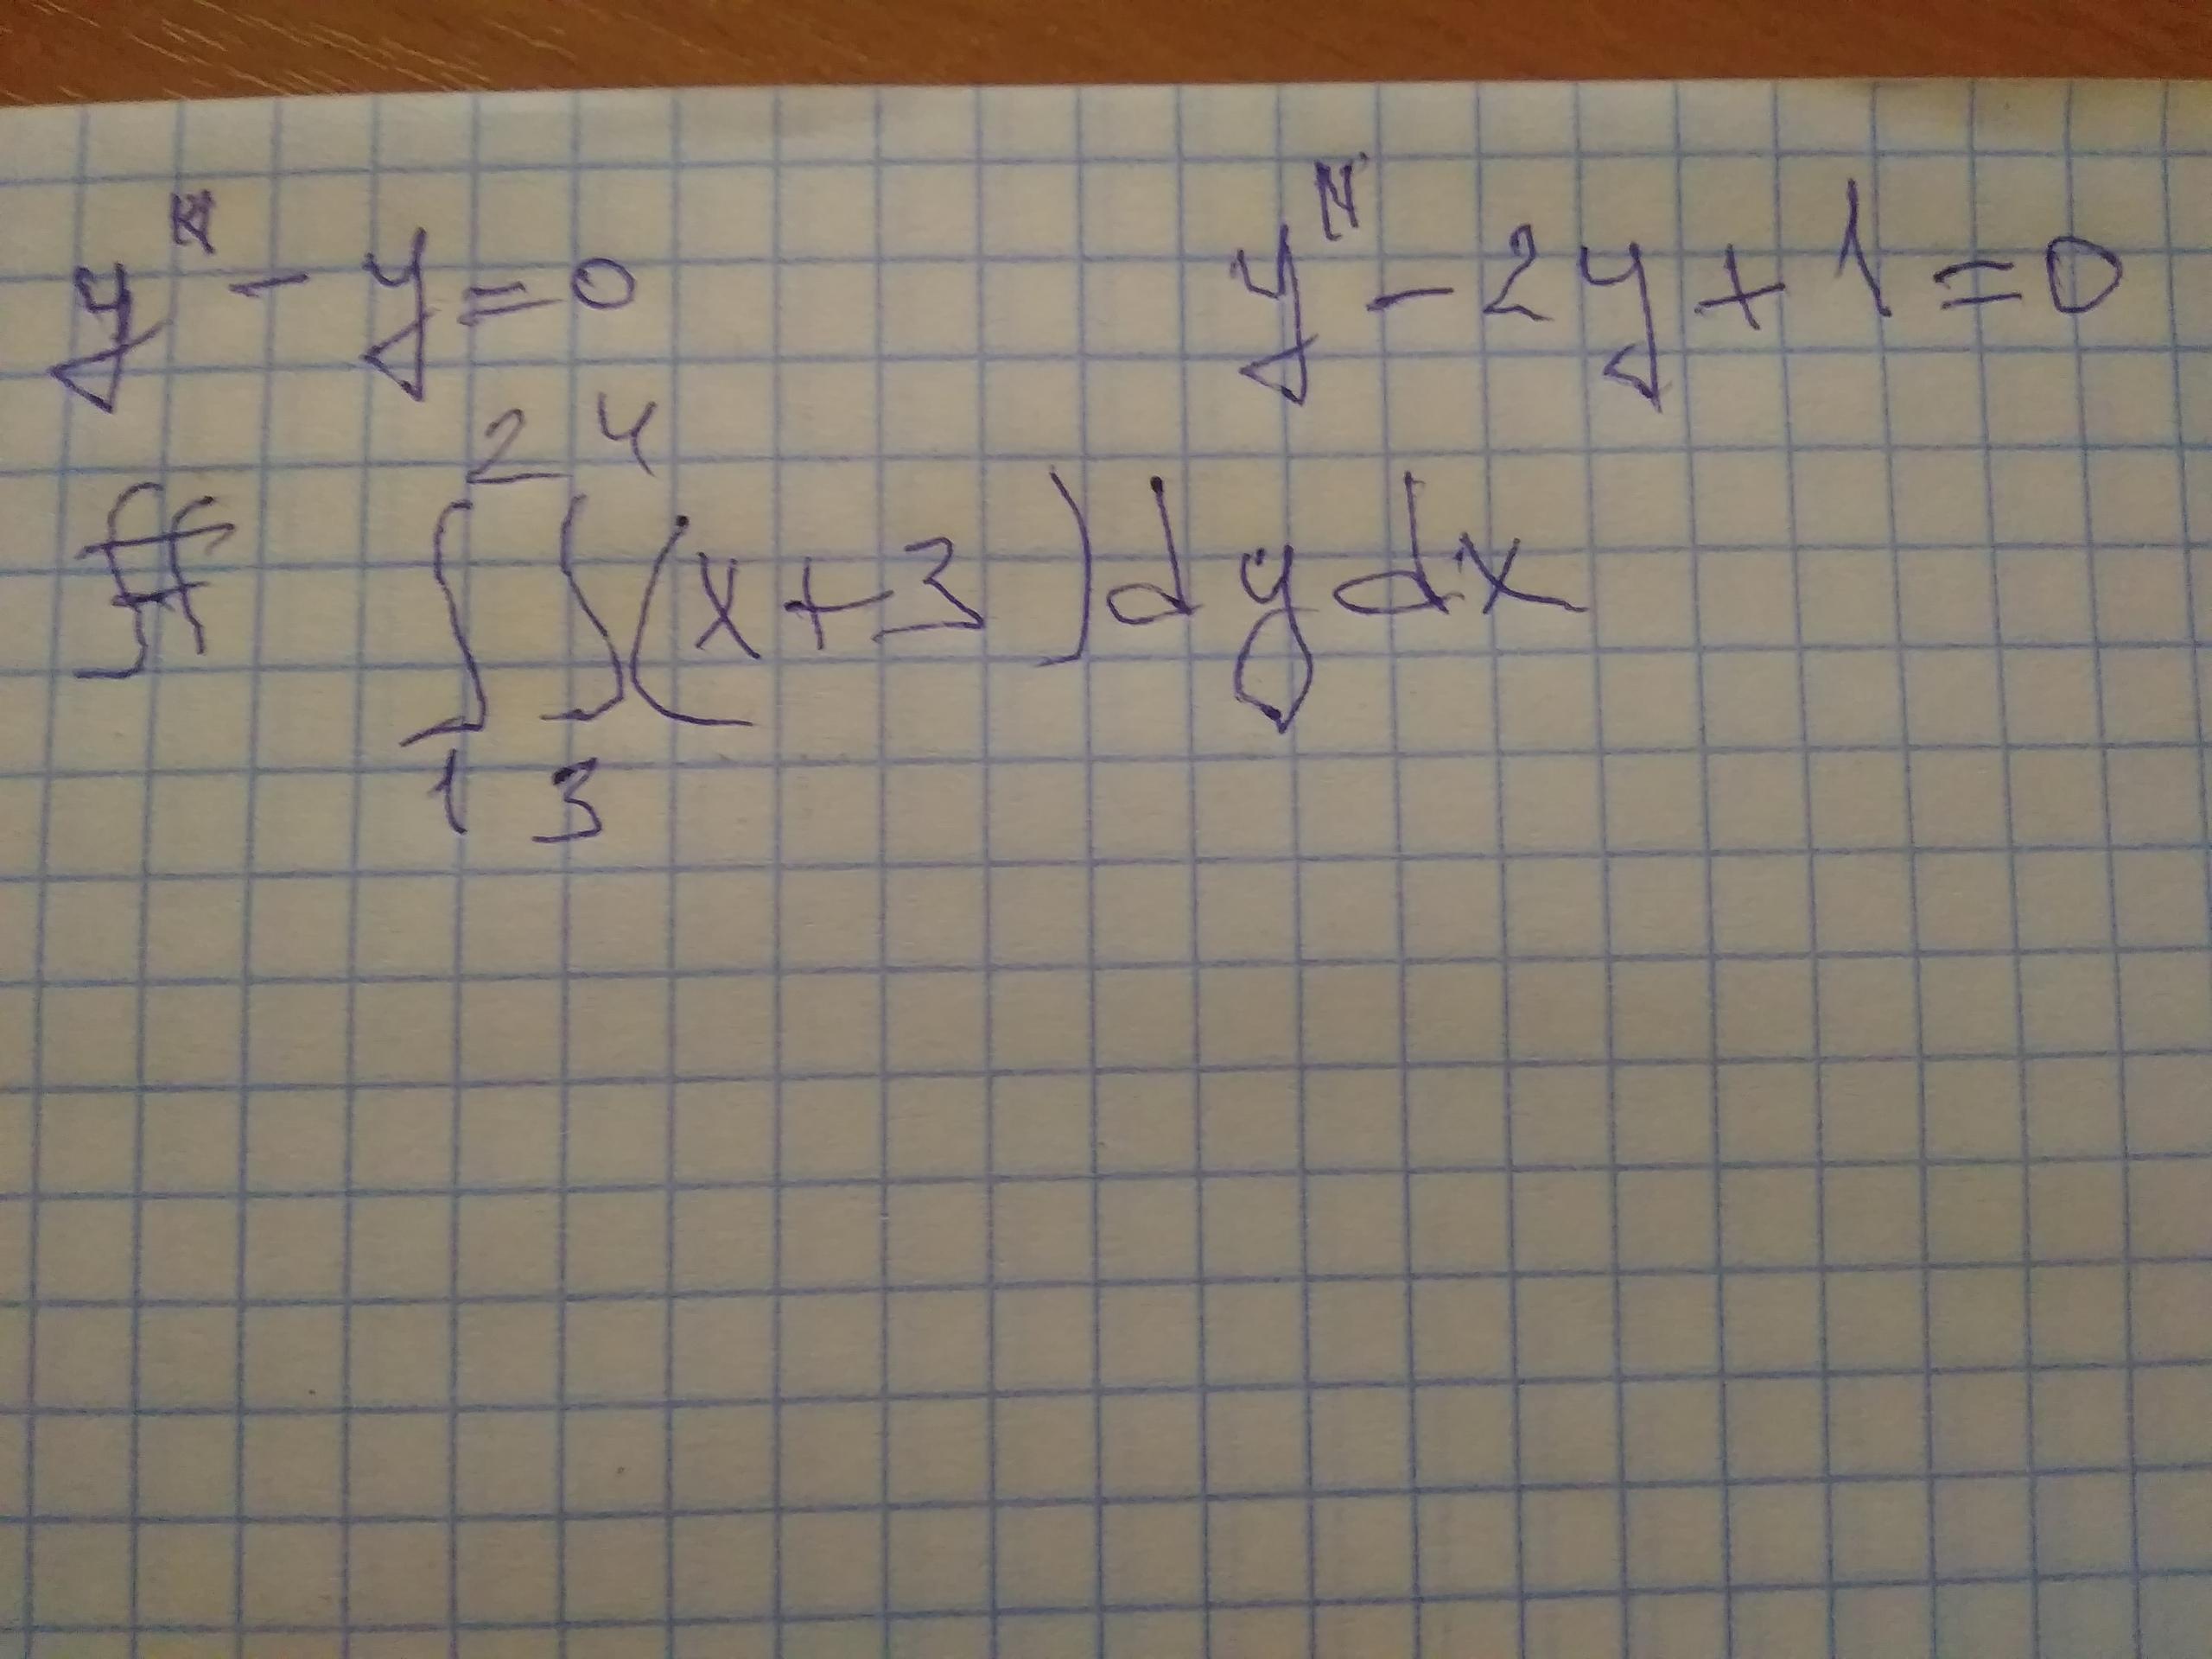 y'' - y = 0 y'' - 2y + 1 = 0
∫∫ ∫₁² ∫₃⁴ (x+3) dy dx